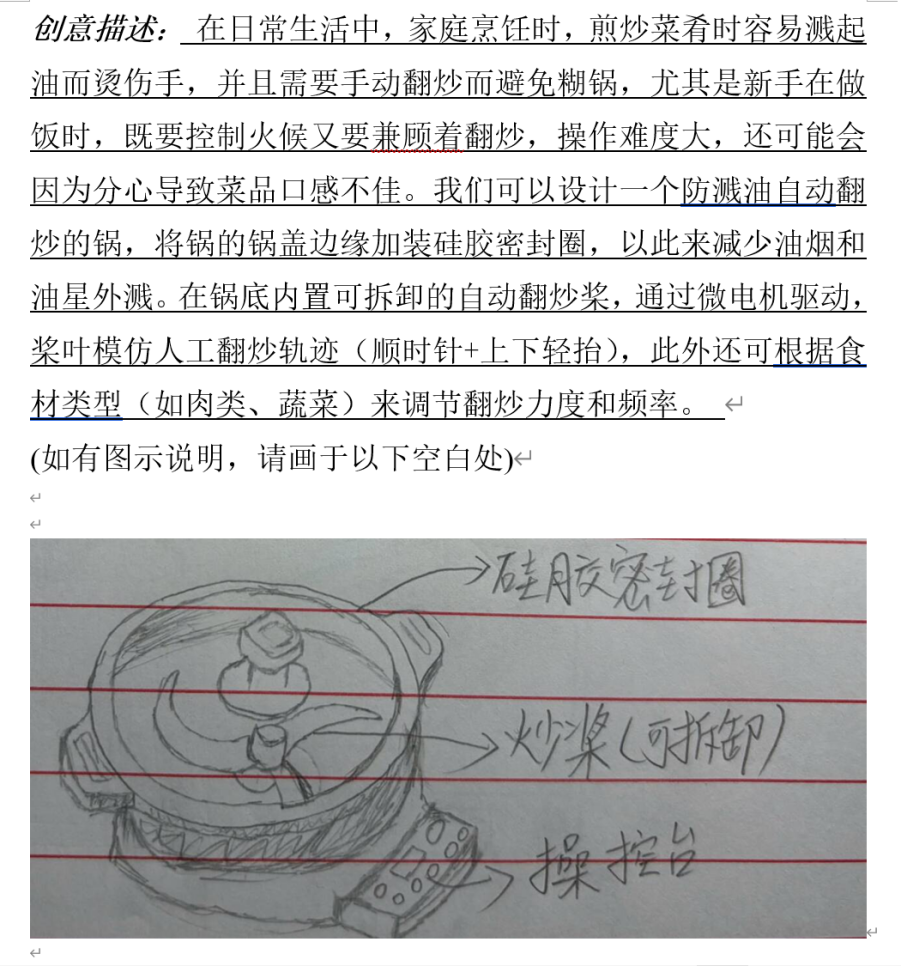 创意描述：在日常生活中，家庭烹饪时，煎炒菜肴时容易溅起
油而烫伤手，并且需要手动翻炒而避免糊锅，尤其是新手在做
饭时，既要控制火候又要兼顾着翻炒，操作难度大，还可能会
因为分心导致菜品口感不佳。我们可以设计一个防溅油自动翻
炒的锅，将锅的锅盖边缘加装硅胶密封圈，以此来减少油烟和
油星外溅。在锅底内置可拆卸的自动翻炒桨，通过微电机驱动，
桨叶模仿人工翻炒轨迹（顺时针+上下轻抬），此外还可根据食
材类型（如肉类、蔬菜）来调节翻炒力度和频率。
(如有图示说明，请画于以下空白处)
硅胶密封圈
炒桨(可拆卸)
操控台